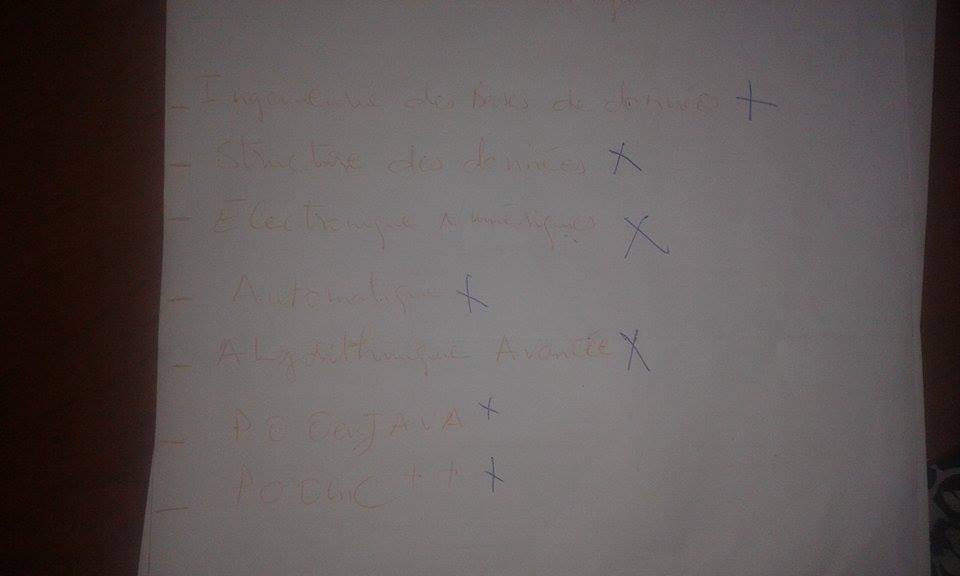 - Ingénieurie des Bases de données +
- Structure des données X
- Electronique numériques X
- Automatique X
- Alogorithmique Avancée X
- POO en JAVA +
- POO en C++ +